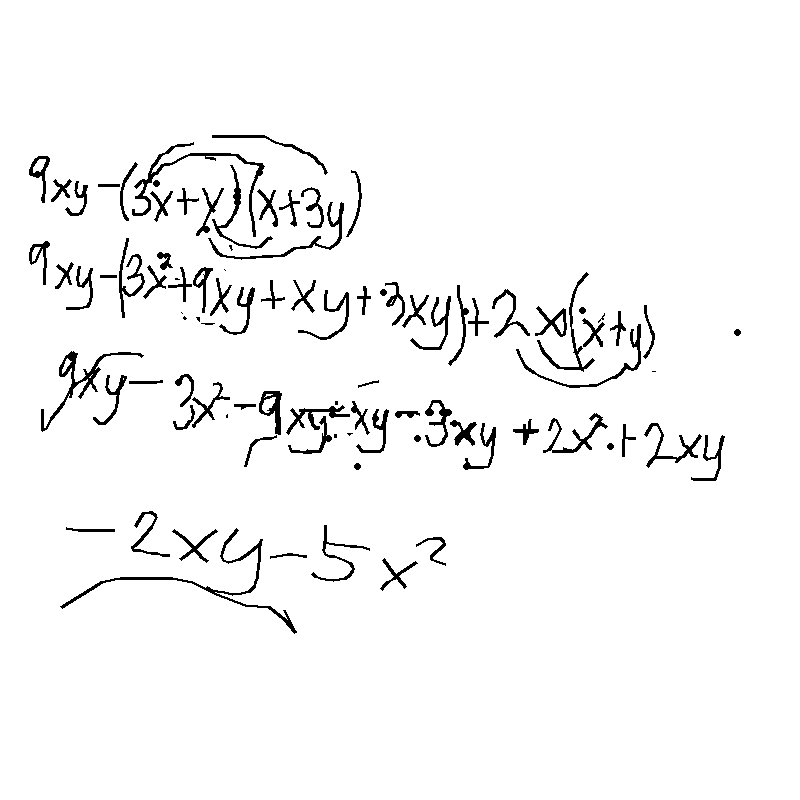 9xy-(3x+x)(x+3y)
9xy-(3x²+9xy+xy+3xy)+2x(x+y)
9xy-3x²-9xy-xy-3xy+2x²+2xy
-2xy-5x²